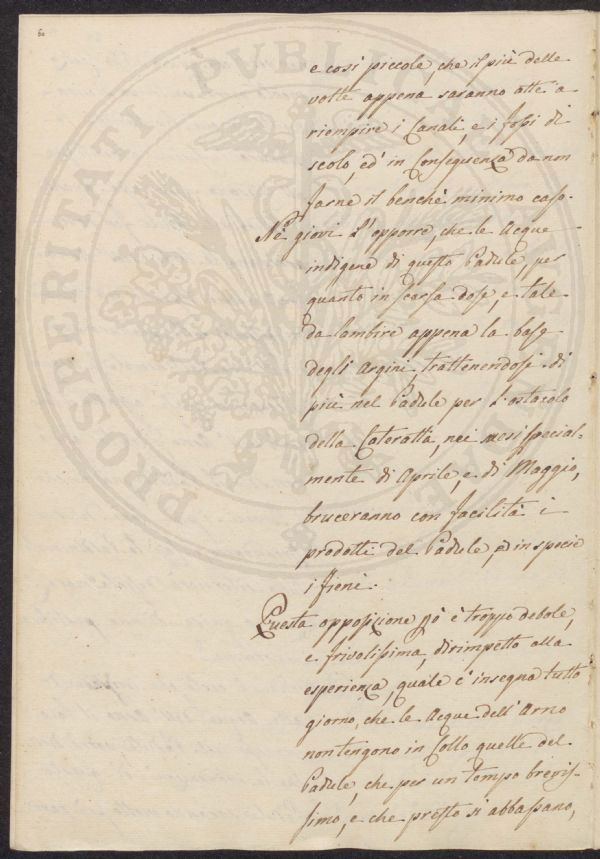 60
e così piccole, che il più delle
volte appena saranno atte a
riempire i Canali, e i fossi di
scolo, ed in Conseguenza da non
farne il benchè minimo caso.
Nè giovi l'opporre, che le Acque
indigene di questo Padule per
quanto in scarsa dose, e tale
da lambire appena la base
degli Argini, trattenendosi di
più nel Padule per l'ostacolo
della Cateratta, nei mesi special-
mente di Aprile, e di Maggio,
bruceranno con facilità i
prodotti del Padule, ed in specie
i fieni.
Questa opposizione però è troppo debole,
e frivolissima, dirimpetto alla
esperienza, quale c'insegna tutto
giorno, che le Acque dell'Arno
non tengono in Collo quelle del
Padule, che per un tempo brevis-
simo, e che presto si abbassano,
PROSPERITATI PVBLICAE